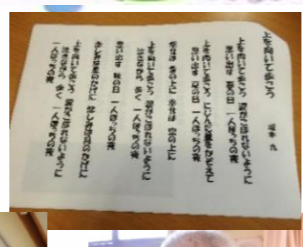 上を向いて歩こう　坂本 九
上を向いて歩こう 涙がこぼれないように
思い出す 春の日 一人ぼっちの夜
上を向いて歩こう にじんだ星をかぞえて
思い出す 夏の日 一人ぼっちの夜
幸せは 雲の上に 幸せは 空の上に
上を向いて歩こう 涙がこぼれないように
泣きながら 歩く 一人ぼっちの夜
思い出す 秋の日 一人ぼっちの夜
悲しみは星のかげに 悲しみは月のかげに
上を向いて歩こう 涙がこぼれないように
泣きながら 歩く 一人ぼっちの夜
一人ぼっちの夜